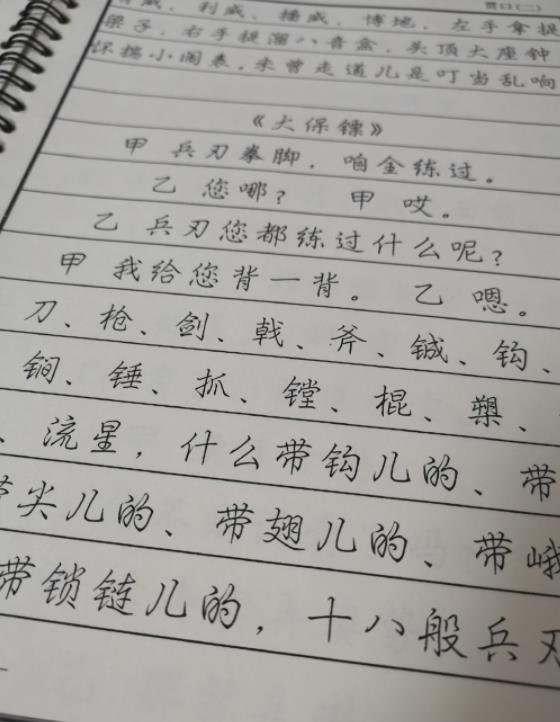 贯口(二)
威、利威、播威、博地，左手拿提
梁子，右手提溜八音盒，头顶大座钟
怀揣小闹表。未曾走道儿是叮当乱响
《大保镖》
甲 兵刃拳脚，咱全练过。
乙 您哪？ 甲 哎。
乙 兵刃您都练过什么呢？
甲 我给您背一背。 乙 嗯。
刀、枪、剑、戟、斧、钺、钩、
锏、锤、抓、镋、棍、槊、
、流星，什么带钩儿的、带
带尖儿的、带翅儿的、带峨
带锁链儿的，十八般兵刃